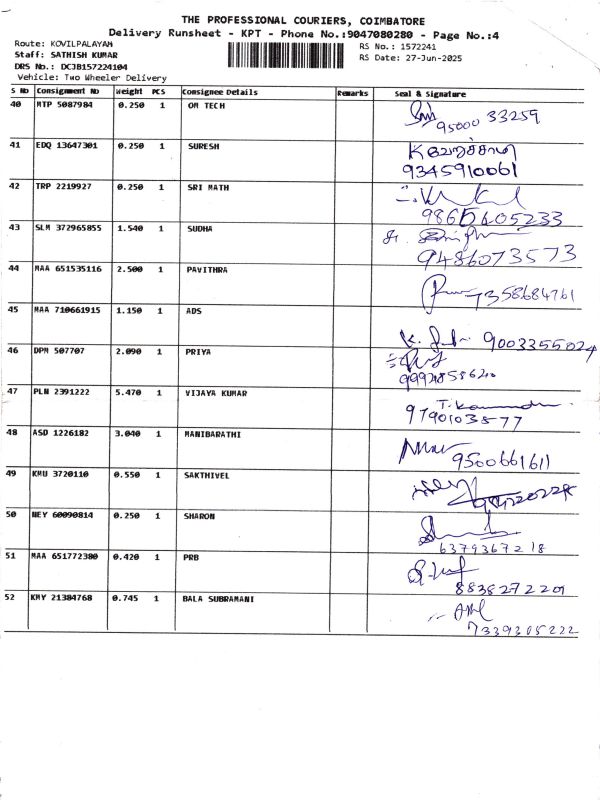 THE PROFESSIONAL COURIERS, COIMBATORE
Delivery Runsheet - KPT - Phone No.:9047080280 - Page No.:4
Route: KOVILPALAYAM
RS No.: 1572241
Staff: SATHISH KUMAR
RS Date: 27-Jun-2025
DRS No.: DCJB157224104
Vehicle: Two Wheeler Delivery
S No Consignment No Weight PCS Consignee Details Remarks Seal & Signature
40 MTP 5087984 0.250 1 OM TECH
95000 33259
41 EDQ 13647301 0.250 1 SURESH
K
9345910061
42 TRP 2219927 0.250 1 SRI MATH
9865605233
43 SLM 372965855 1.540 1 SUDHA
9486073573
44 MAA 651535116 2.500 1 PAVITHRA
7358684761
45 MAA 710661915 1.150 1 ADS
9003355024
46 DPM 507707 2.090 1 PRIYA
47 PLN 2391222 5.470 1 VIJAYA KUMAR
9790103877
48 ASD 1226182 3.040 1 MANIBARATHI
9500661611
49 KMU 3720110 0.550 1 SAKTHIVEL
50 NEY 60090814 0.250 1 SHARON
6379367218
51 MAA 651772380 0.420 1 PRB
8838272201
52 KMY 21384768 0.745 1 BALA SUBRAMANI
7339305222